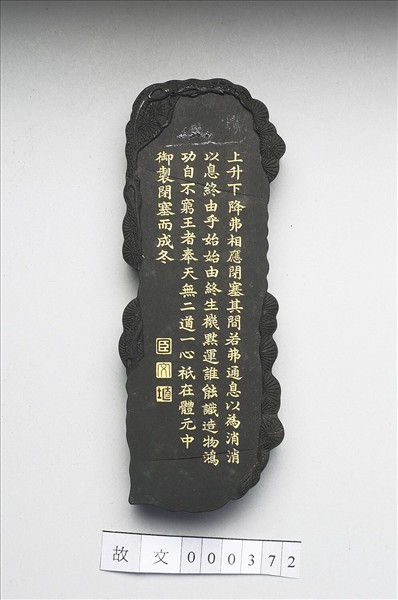 上升下降弗相應閉塞其間若弗通息以為消消
以息終由乎始始由終生機默運誰能識造物鴻
功自不窮王者奉天無二道一心祇在體元中
御製閉塞而成冬
臣
故文000372